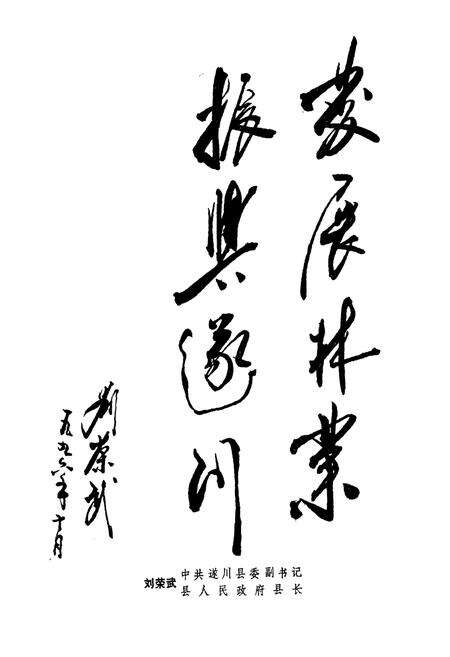 发展林业
振興遂川
刘荣武
一九九六年十月
刘荣武 中共遂川县委副书记
县人民政府县长